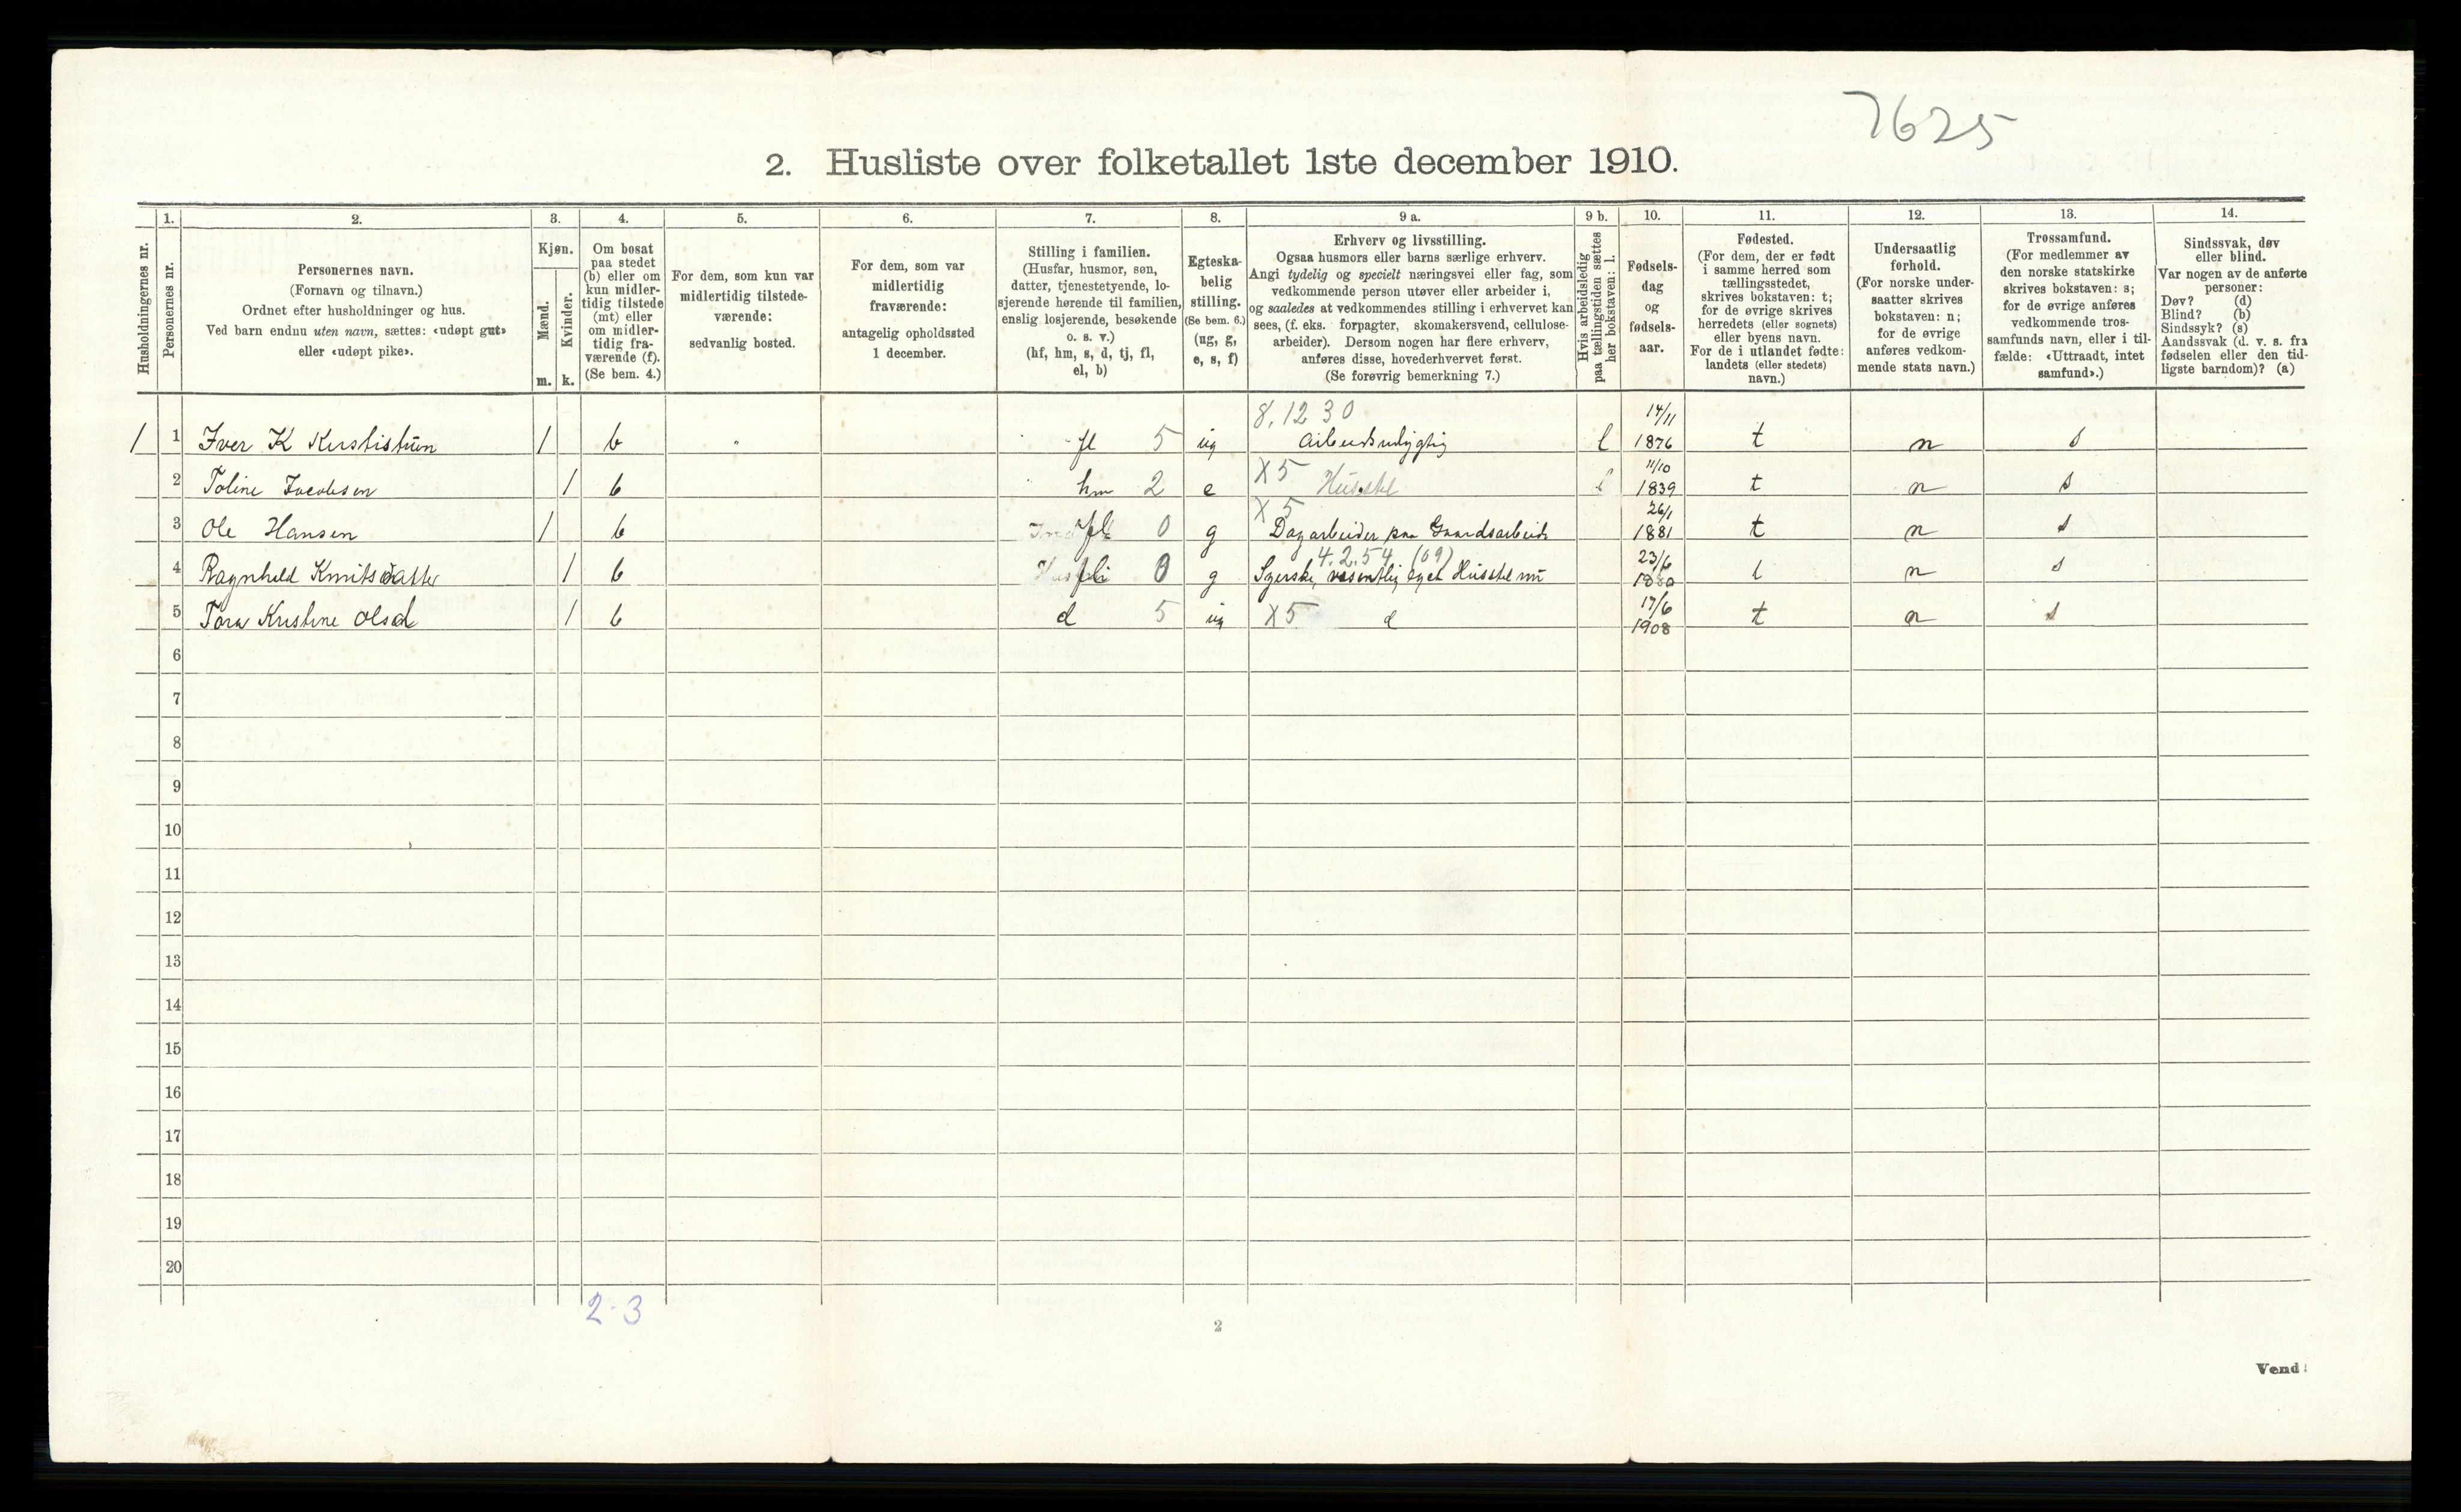 7625
2. Husliste over folketallet 1ste december 1910.
Husholdningernes nr.
1.
Personernes nr.
2.
Personernes navn.
(Fornavn og tilnavn.)
Ordnet efter husholdninger og hus.
Ved barn endnu uten navn, sættes: «udøpt gut»
eller «udøpt pike».
3.
Kjøn.
Mænd.
Kvinder.
m. k.
4.
Om bosat
paa stedet
(b) eller om
kun midler-
tidig tilstede
(mt) eller
om midler-
tidig fra-
værende (f).
(Se bem. 4.)
5.
For dem, som kun var
midlertidig tilstede-
værende:
sedvanlig bosted.
6.
For dem, som var
midlertidig
fraværende:
antagelig opholdssted
1 december.
7.
Stilling i familien.
(Husfar, husmor, søn,
datter, tjenestetyende, lo-
sjerende hørende til familien,
enslig losjerende, besøkende
o. s. v.)
(hf, hm, s, d, tj, fl,
el, b)
8.
Egteska-
belig
stilling.
(Se bem. 6.)
(ug, g,
e, s, f)
9 a.
Erhverv og livsstilling.
Ogsaa husmors eller barns særlige erhverv.
Angi tydelig og specielt næringsvei eller fag, som
vedkommende person utøver eller arbeider i,
og saaledes at vedkommendes stilling i erhvervet kan
sees, (f. eks. forpagter, skomakersvend, cellulose-
arbeider). Dersom nogen har flere erhverv,
anføres disse, hovederhvervet først.
(Se forøvrig bemerkning 7.)
9 b.
Hvis arbeidsledig
paa tællingstiden sættes
her bokstaven: l.
10.
Fødsels-
dag
og
fødsels-
aar.
11.
Fødested.
(For dem, der er født
i samme herred som
tællingsstedet,
skrives bokstaven: t;
for de øvrige skrives
herredets (eller sognets)
eller byens navn.
For de i utlandet fødte:
landets (eller stedets)
navn.)
12.
Undersaatlig
forhold.
(For norske under-
saatter skrives
bokstaven: n;
for de øvrige
anføres vedkom-
mende stats navn.)
13.
Trossamfund.
(For medlemmer av
den norske statskirke
skrives bokstaven: s;
for de øvrige anføres
vedkommende tros-
samfunds navn, eller i til-
fælde: «Uttraadt, intet
samfund».)
14.
Sindssvak, døv
eller blind.
Var nogen av de anførte
personer:
Døv? (d)
Blind? (b)
Sindssyk? (s)
Aandssvak (d. v. s. fra
fødselen eller den tid-
ligste barndom)? (a)
8.12 30 14/11
1 1 Iver K 1 b fl 5 ug l 1876 t n s
X5 11/10
2 Toline Jacobsen 1 b hm 2 e Husstel l 1839 t n s
X5 26/1
3 Ole Hansen 1 b fl 0 g Dagarbeider paa Gaardsarbeide 1881 t n s
4.2.54 (09) 23/6
4 Ragnhild Knutsdatter 1 b fl 0 g Syerske, vesentlig eget Husstel nu 1880 t n s
17/6
5 Tora Kristine Olsd 1 b d 5 ug X5 d 1908 t n s
6
7
8
9
10
11
12
13
14
15
16
17
18
19
20
2-3
2
Vend!